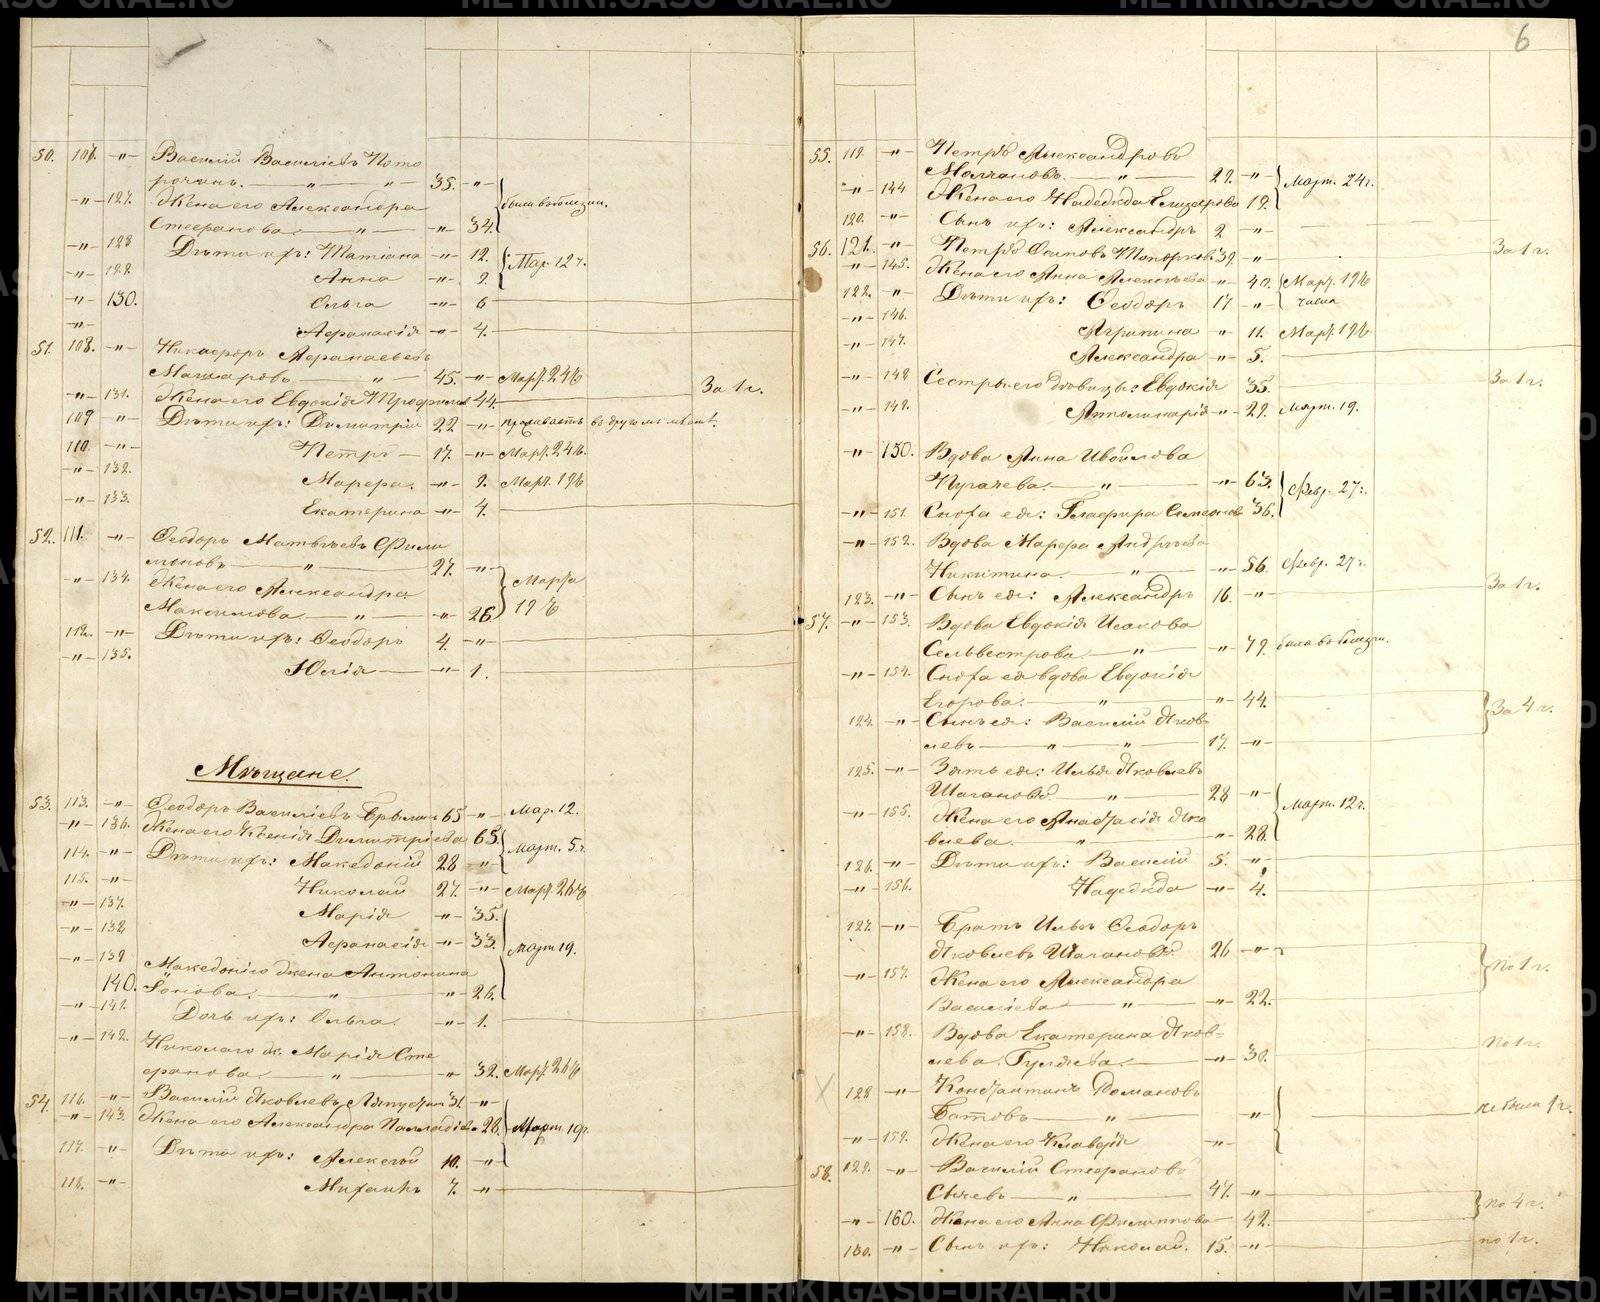 6
50. 107. -"- Василій Васильевъ Пото
рочинъ. — " — " — 35. -"-
-"- 127. Жена его Александра
Стефанова — " — -"- 34. была въ болезни.
-"- 128 Дѣти ихъ: Татіана -"- 12. Мар. 12 г.
-"- 129. Анна -"- 9.
-"- 130. Ольга -"- 6
-"- Афанасія -"- 4.
51. 108. -"- Никифоръ Афанасьевъ
— " — 45. -"- Март. 24
-"- 131. Жена его Евдокія 44. За 1 г.
109 -"- Дѣти ихъ: Димитрій 22 -"- проживаетъ въ другомъ мѣстѣ.
110. -"- Петръ — 17. -"- Март. 24
-"- 132. Марфа. -"- 9. Март. 19
-"- 133. Екатерина -"- 4.
52. 111. -"- Феодоръ Матвѣевъ Фили
моновъ — " — 27. -"-
-"- 134. Жена его Александра Марта
Максимова — " — -"- 26. 19
112. -"- Дѣти ихъ: Феодоръ 4. -"-
-"- 135. Юлія — -"- 1.
Мѣщане.
53. 113. -"- Феодоръ Васильевъ 65 -"- Мар. 12.
-"- 136. Жена его Ксенія Димитріева 63. Март. 5.
114. -"- Дѣти ихъ: Македоній 28 -"-
115. -"- Николай 27. -"- Март. 26
-"- 137. Марія -"- 35.
-"- 138 Афанасія -"- 33. Март 19.
-"- 139 Македонія жена Антонина
140. Іонова. — " — -"- 26.
-"- 141. Дочь ихъ: Ольга. -"- 1.
-"- 142. Николая ж. Марія Сте
фанова — " — -"- 32. Март. 26
54. 116. -"- Василій Яковлевъ 31 -"-
-"- 143. Жена его Александра Палладіева 28. Март 19
117. -"- Дѣти ихъ: Алексѣй 10. -"-
118. -"- Михаилъ 7. -"-
55. 119. -"- Петръ Александровъ
Молчановъ. — " — 29. -"- Март. 24 г.
-"- 144. Жена его Надежда Елизарова 19.
120. -"- Сынъ ихъ: Александръ 2 -"-
56. 121. -"- Петръ Осиповъ Топорковъ 39. -"- За 1 г.
-"- 145. Жена его Анна Алексѣева -"- 40. Март. 19
122. -"- Дѣти ихъ: Феодоръ 17 -"- числа
-"- 146. Агрипина -"- 11. Март. 19
-"- 147. Александра -"- 5.
-"- 148 Сестры его дѣвицы: Евдокія 35. За 1 г.
-"- 149. Апполинарія -"- 29. Март. 19.
-"- 150. Вдова Анна Ивойлова
Пугачева. — " — -"- 63. Февр. 27.
-"- 151. Сноха ея: Глафира Семенов 36.
-"- 152. Вдова Марфа Андрѣева
Никитина. — " — -"- 56. Февр. 27 г.
123. -"- Сынъ ея: Александръ 16. -"- За 1 г.
57. -"- 153. Вдова Евдокія Исакова
Сельвестрова — " — -"- 79. была въ болѣзни.
-"- 154. Сноха ея вдова Евдокія
Егорова: — " — -"- 44. За 4 г.
124. -"- Сынъ ея: Василій Яков-
левъ — " — " — 17. -"-
125. -"- Зять ея: Илья Яковлевъ
Шагановъ. — " — 28 -"- Март. 12 г.
-"- 155. Жена его Анастасія Яко
влева. — " — -"- 28.
126. -"- Дѣти ихъ: Василій 5. -"-
-"- 156. Надежда -"- 4.
127. -"- Братъ Ильи Феодоръ
Яковлевъ Шагановъ. 26 -"- по 1 г.
-"- 157. Жена его Александра
Васильева — " — -"- 22.
-"- 158. Вдова Екатерина Яков-
лева Гуляева. — -"- 30. по 1 г.
128 -"- Константинъ Романовъ
Батовъ — " -"- не была 1 г.
-"- 159. Жена его Клавдія -"-
58. 129. -"- Василій Стефановъ
Сычевъ — " — 47. -"- по 4 г.
-"- 160. Жена его Анна Филиппова — 42.
130. -"- Сынъ ихъ: Николай. 15. -"- по 1 г.